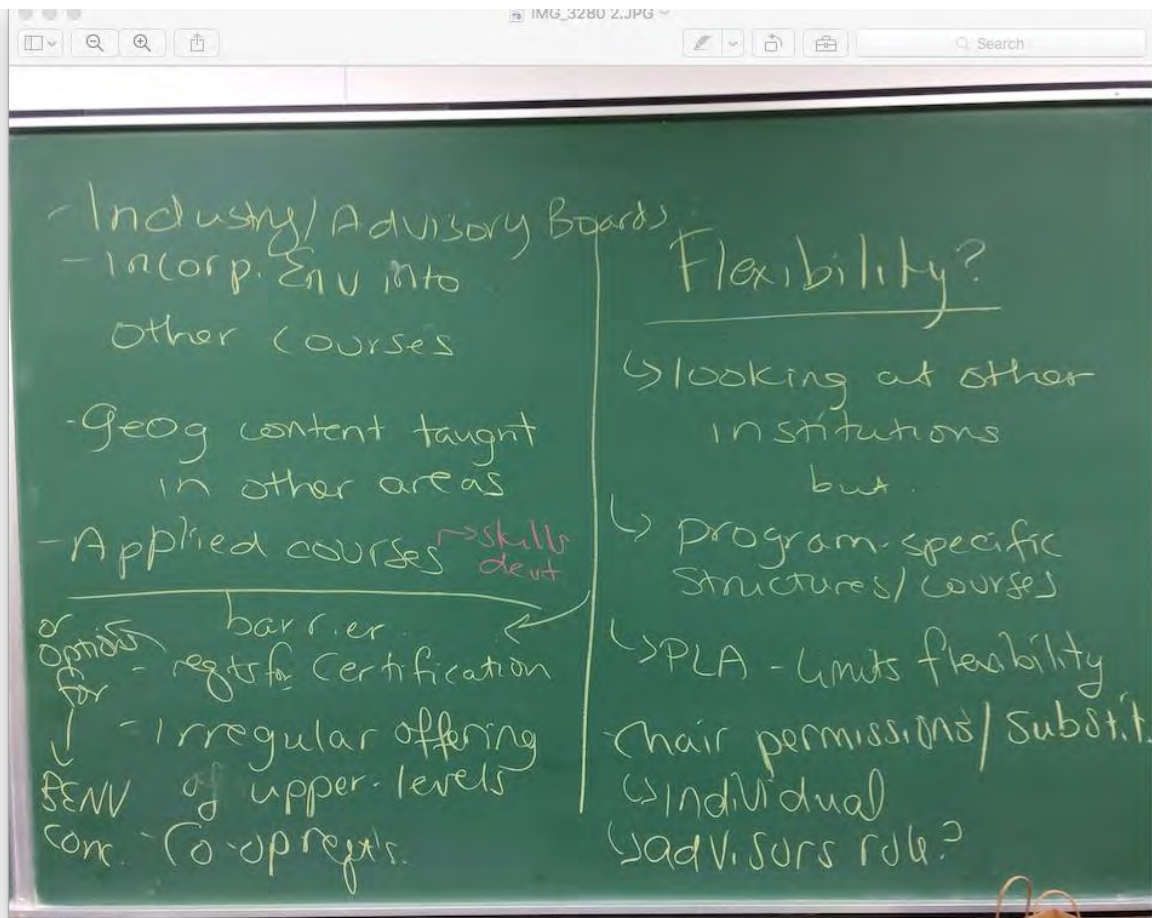 IMG_3280 2.JPG
Search
- Industry/Advisory Boards
- Incorp. Env into
other courses
- Geog content taught
in other areas
- Applied courses → skills
devt
barrier
- reqts for Certification
- Irregular offering
of upper-levels
- Co-op reqt's.
or
options
for
↓
BENV
conc.
Flexibility?
↳ looking at other
institutions
but
↳ program-specific
structures/courses
↳ PLA - limits flexibility
- Chair permissions/Substit.
↳ individual
↳ advisors role?